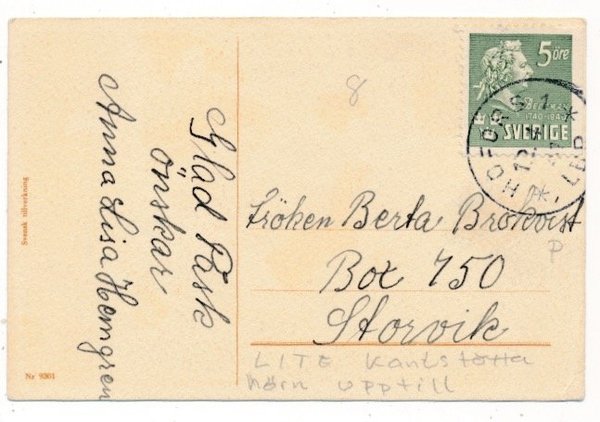 Glad Påsk
önskar
Anna Lisa Hemgren
Svensk tillverkning
Nr 9301
8
5 öre
BELLMAN
1740-1940
SVERIGE
Fröken Berta Brokvist
P
Box 750
Storvik
LITE kantstötta
hörn upptill